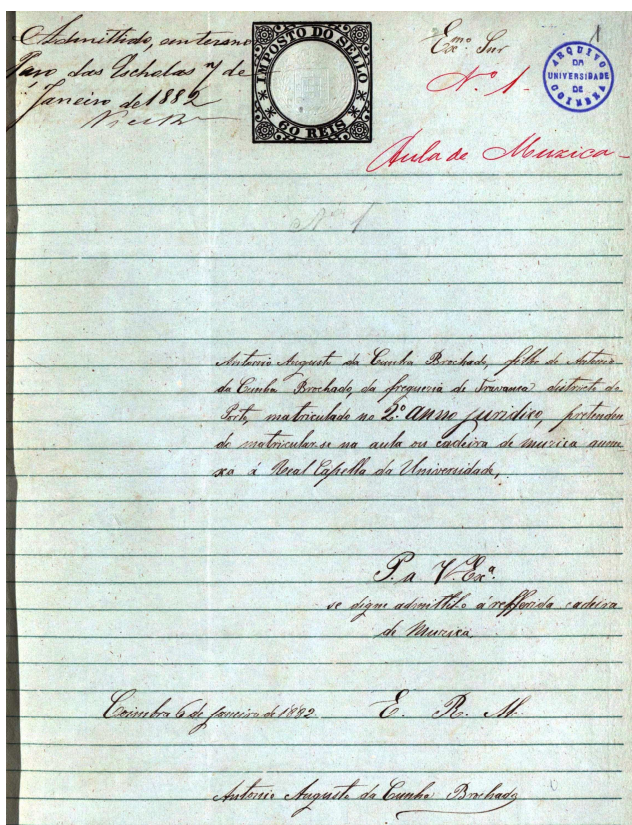 Admittido, em termos
Paço das Escholas 7 de
Janeiro de 1882
IMPOSTO DO SELLO
60 REIS
Ex.mo Snr
Nº 1.
1
ARQUIVO
DA
UNIVERSIDADE
DE
COIMBRA
Aula de Muzica
Nº 1
Antonio Augusto da Cunha Brochado, filho de Antonio
da Cunha Brochado, da freguezia de Travanca districto do
Porto, matriculado no 2.º anno juridico, pretenden-
do matricular-se na aula ou cadeira de muzica anne-
xa á Real Capella da Universidade,
P. a V. Ex.ª
se digne admittil-o á refferida cadeira
de Muzica
Coimbra 6 de Janeiro de 1882.
E. R. M.
Antonio Augusto da Cunha Brochado